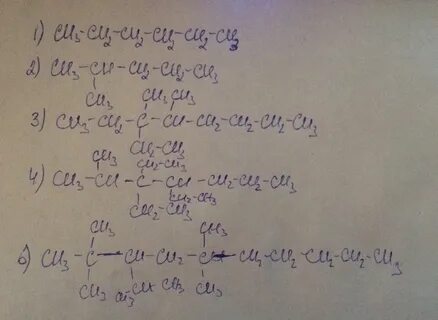 1) CH3-CH2-CH2-CH2-CH2-CH3
2) CH3-CH-CH2-CH2-CH3
CH3 CH2-CH3
3) CH3-CH2-C-CH-CH2-CH2-CH2-CH3
CH3 CH2-CH3
CH2-CH3
4) CH3-CH-C-CH-CH2-CH2-CH3
CH2-CH3
CH2-CH3
CH3 CH3
5) CH3-C-CH-CH2-CH-CH2-CH2-CH2-CH2-CH3
CH3 CH3 CH CH3 CH3